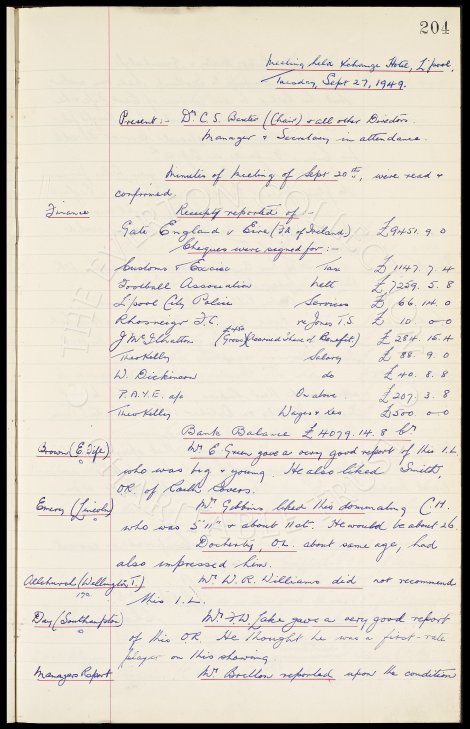 204
Meeting held Xchange Hotel, L'pool,
Tuesday, Sept 27, 1949.
Present:- Dr. C. S. Baxter (Chair) & all other Directors.
Manager & Secretary in attendance.
Minutes of Meeting of Sept 20th, were read &
confirmed.
Finance Receipts reported of:-
Gate England v Eire (F.A. of Ireland) £9451. 9. 0
Cheques were signed for:-
Customs & Excise Tax £1147. 7. 4
Football Association Nett £7259. 5. 8
L'pool City Police Services £ 66. 14. 0
Rhosneigr F.C. re Jones T.S. £ 10 0-0
J McIlhatton (Gross £450) (Accrued Share of Benefit) £ 284. 15. 4
Theo Kelly Salary £ 88. 9. 0
W. Dickinson do £ 40. 8. 8
P.A.Y.E. a/c On above £ 207. 3. 8
Theo Kelly Wages & Xes £500 0-0
Bank Balance £4079. 14. 8 Cr
Brown (E. Fife) Mr E. Green gave a very good report of this I.L
who was big & young. He also liked Smith,
OR of Raith Rovers.
Emery (Lincoln) Mr Gibbins liked this dominating C.H.
who was 5'11" & about 11 st. He would be about 26
Docherty, OL. about same age, had
also impressed him.
Allchurch (Wellington T.) Mr W. R. Williams did not recommend
this I.L.
Day (Southampton) Mr F. W. Lake gave a very good report
of this OR. He thought he was a first-rate
player on this showing.
Managers Report Mr Britton reported upon the condition